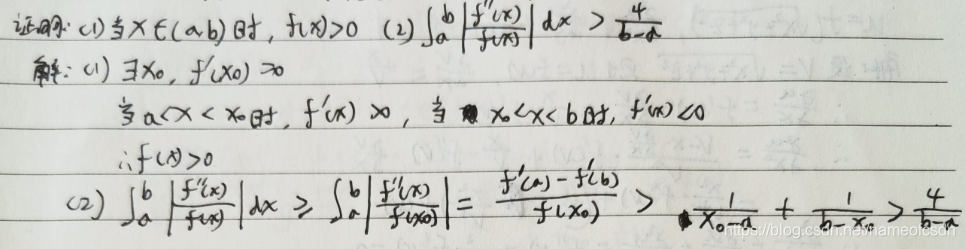 证明: (1) 当 x∈(a b) 时, f(x)>0 (2) ∫_a^b |f''(x)/f(x)| dx > 4/(b-a)
解: (1) ∃x₀, f'(x₀)=0
当 a<x<x₀时, f'(x)>0, 当 x₀<x<b时, f'(x)<0
∴f(x)>0
(2) ∫_a^b |f''(x)/f(x)| dx ≥ ∫_a^b |f''(x)/f(x₀)| = (f'(a)-f'(b))/f(x₀) > 1/(x₀-a) + 1/(b-x₀) > 4/(b-a)
https://blog.csdn.net/nameofcsdn